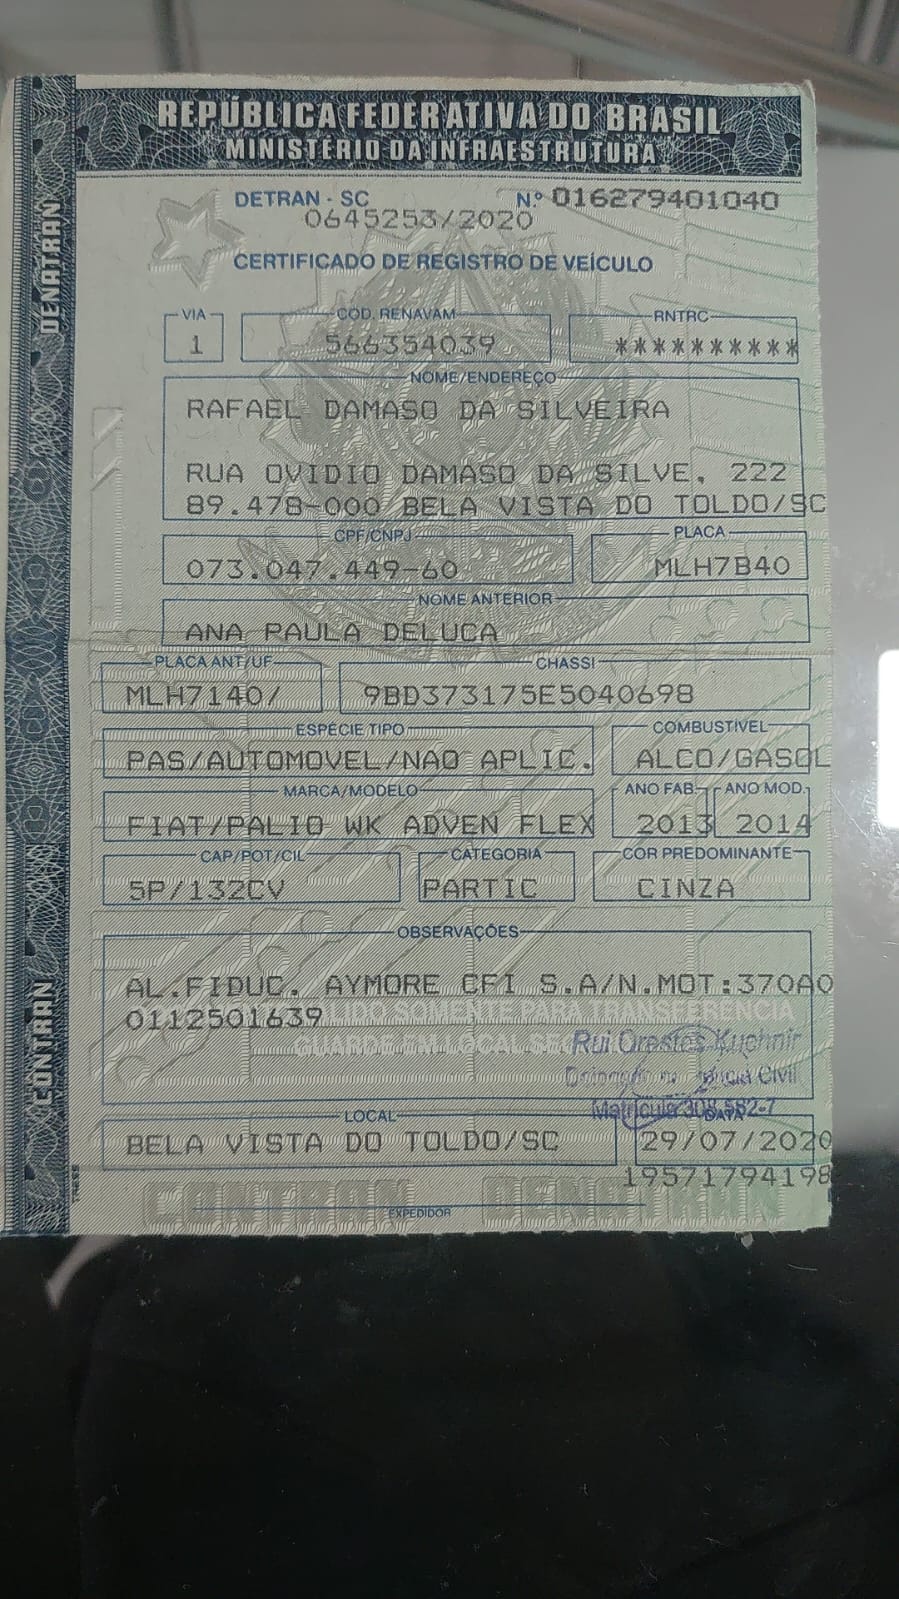 REPÚBLICA FEDERATIVA DO BRASIL
MINISTÉRIO DA INFRAESTRUTURA
DENATRAN
CONTRAN
DETRAN - SC Nº 016279401040
0645253/2020
CERTIFICADO DE REGISTRO DE VEÍCULO
VIA CÓD. RENAVAM RNTRC
1 566354039 **********
NOME/ENDEREÇO
RAFAEL DAMASO DA SILVEIRA
RUA OVIDIO DAMASO DA SILVE, 222
89.478-000 BELA VISTA DO TOLDO/SC
CPF/CNPJ PLACA
073.047.449-60 MLH7B40
NOME ANTERIOR
ANA PAULA DELUCA
PLACA ANT/UF CHASSI
MLH7140/ 9BD373175E5040698
ESPÉCIE TIPO COMBUSTÍVEL
PAS/AUTOMOVEL/NAO APLIC. ALCO/GASOL
MARCA/MODELO ANO FAB. ANO MOD.
FIAT/PALIO WK ADVEN FLEX 2013 2014
CAP/POT/CIL CATEGORIA COR PREDOMINANTE
5P/132CV PARTIC CINZA
OBSERVAÇÕES
AL.FIDUC. AYMORE CFI S.A/N.MOT:370A0
0112501639
VÁLIDO SOMENTE PARA TRANSFERÊNCIA
GUARDE EM LOCAL
Rui Orestes Kuchnir
Civil
Matrícula
LOCAL DATA
BELA VISTA DO TOLDO/SC 29/07/2020
19571794198
CONTRAN DENATRAN
EXPEDIDOR